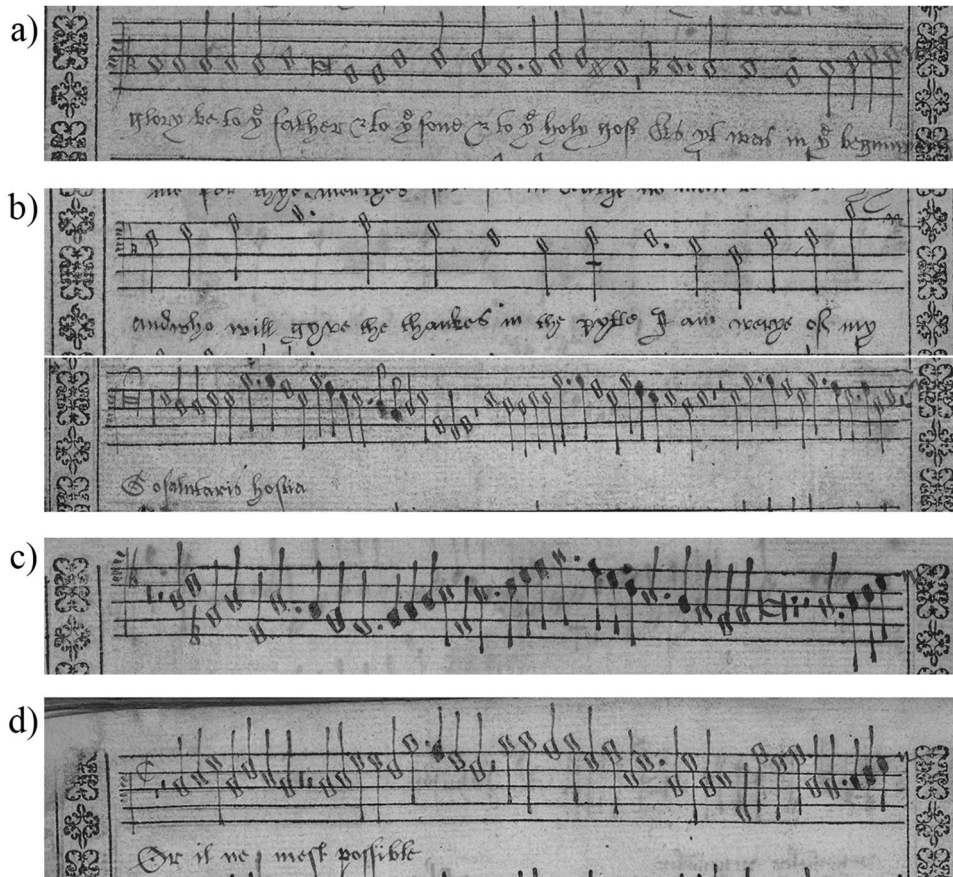 a)
glory be to yͤ father & to yͤ sone & to yͤ holy gost As yt was in yͤ beginnyng
b)
me for thye mercyes
and who will gyve the thankes in the pytte I am werye of my
O salutaris hostia
c)
d)
Or il ne mest possible